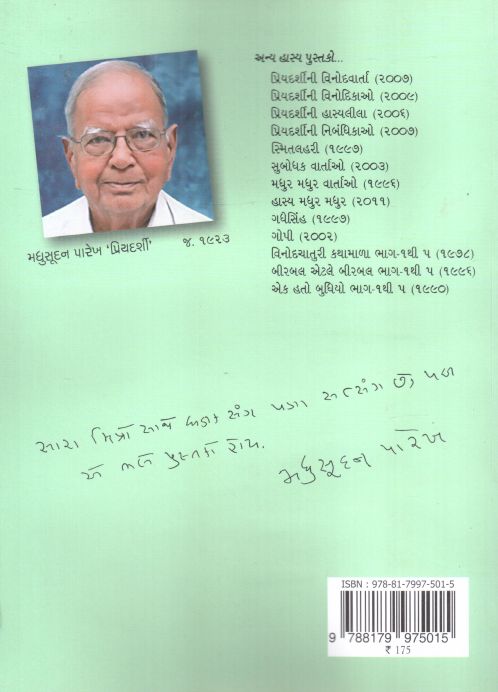 અન્ય હાસ્ય પુસ્તકો...
પ્રિયદર્શીની વિનોદવાર્તા (૨૦૦૭)
પ્રિયદર્શીની વિનોદિકાઓ (૨૦૦૯)
પ્રિયદર્શીની હાસ્યલીલા (૨૦૦૬)
પ્રિયદર્શીની નિબંધિકાઓ (૨૦૦૭)
સ્મિતલહરી (૧૯૯૭)
સુબોધક વાર્તાઓ (૨૦૦૩)
મધુર મધુર વાર્તાઓ (૧૯૯૬)
હાસ્ય મધુર મધુર (૨૦૧૧)
ગધેસિંહ (૧૯૯૭)
ગોપી (૨૦૦૨)
વિનોદચાતુરી કથામાળા ભાગ-૧થી ૫ (૧૯૭૮)
બીરબલ એટલે બીરબલ ભાગ-૧થી ૫ (૧૯૯૬)
એક હતો બુધિયો ભાગ-૧થી ૫ (૧૯૯૦)
મધુસૂદન પારેખ ‘પ્રિયદર્શી’ જ. ૧૯૨૩
સારા મિત્રો સાથે સંગ પણ સત્સંગ છે પછી
એ ભલે પુસ્તકો હોય.
મધુસૂદન પારેખ
ISBN : 978-81-7997-501-5
9 788179 975015
₹ 175